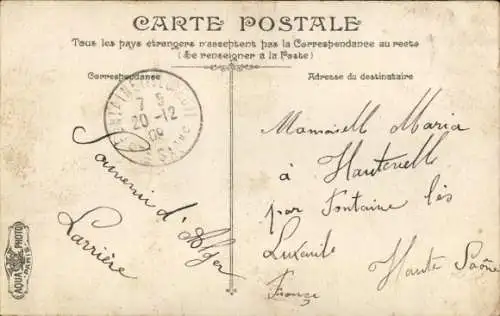 CARTE POSTALE
Tous les pays étrangers n'acceptent pas la Correspondance au recto
(Se renseigner à la Poste)
Correspondance
Adresse du destinataire
7 5
20-12
09
Souvenir d'Alger
Larrière
Mamaisell Maria
à Hautevell
par Fontaine lès
Luxeuils
Haute Saône
France
AQUA PHOTO
PARIS